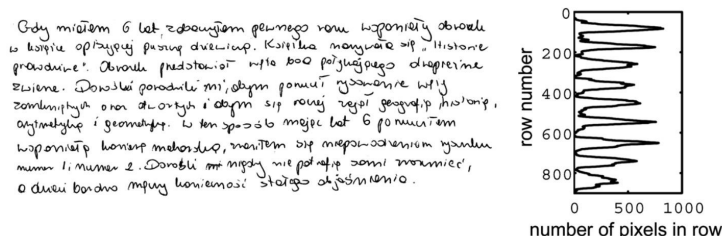 Gdy miałem 6 lat, zobaczyłem pewnego razu wspaniały obrazek
w książce opisującej puszczę dziewiczą. Książka nazywała się „Historie
prawdziwe". Obrazek przedstawiał węża boa połykającego drapieżne
zwierze. Dorośli poradzili mi, abym porzucił rysowanie węży
zamkniętych oraz otwartych i abym się raczej zajął geografią, historią,
arytmetyką i geometrią. W ten sposób mając lat 6 porzuciłem
wspaniałą karierę malarską, zraziłem się niepowodzeniem rysunku
numer 1 i numer 2. Dorośli nigdy nie potrafią sami zrozumieć,
a dzieci bardzo męczy konieczność stałego objaśniania.
row number
0
200
400
600
800
0 500 1000
number of pixels in row